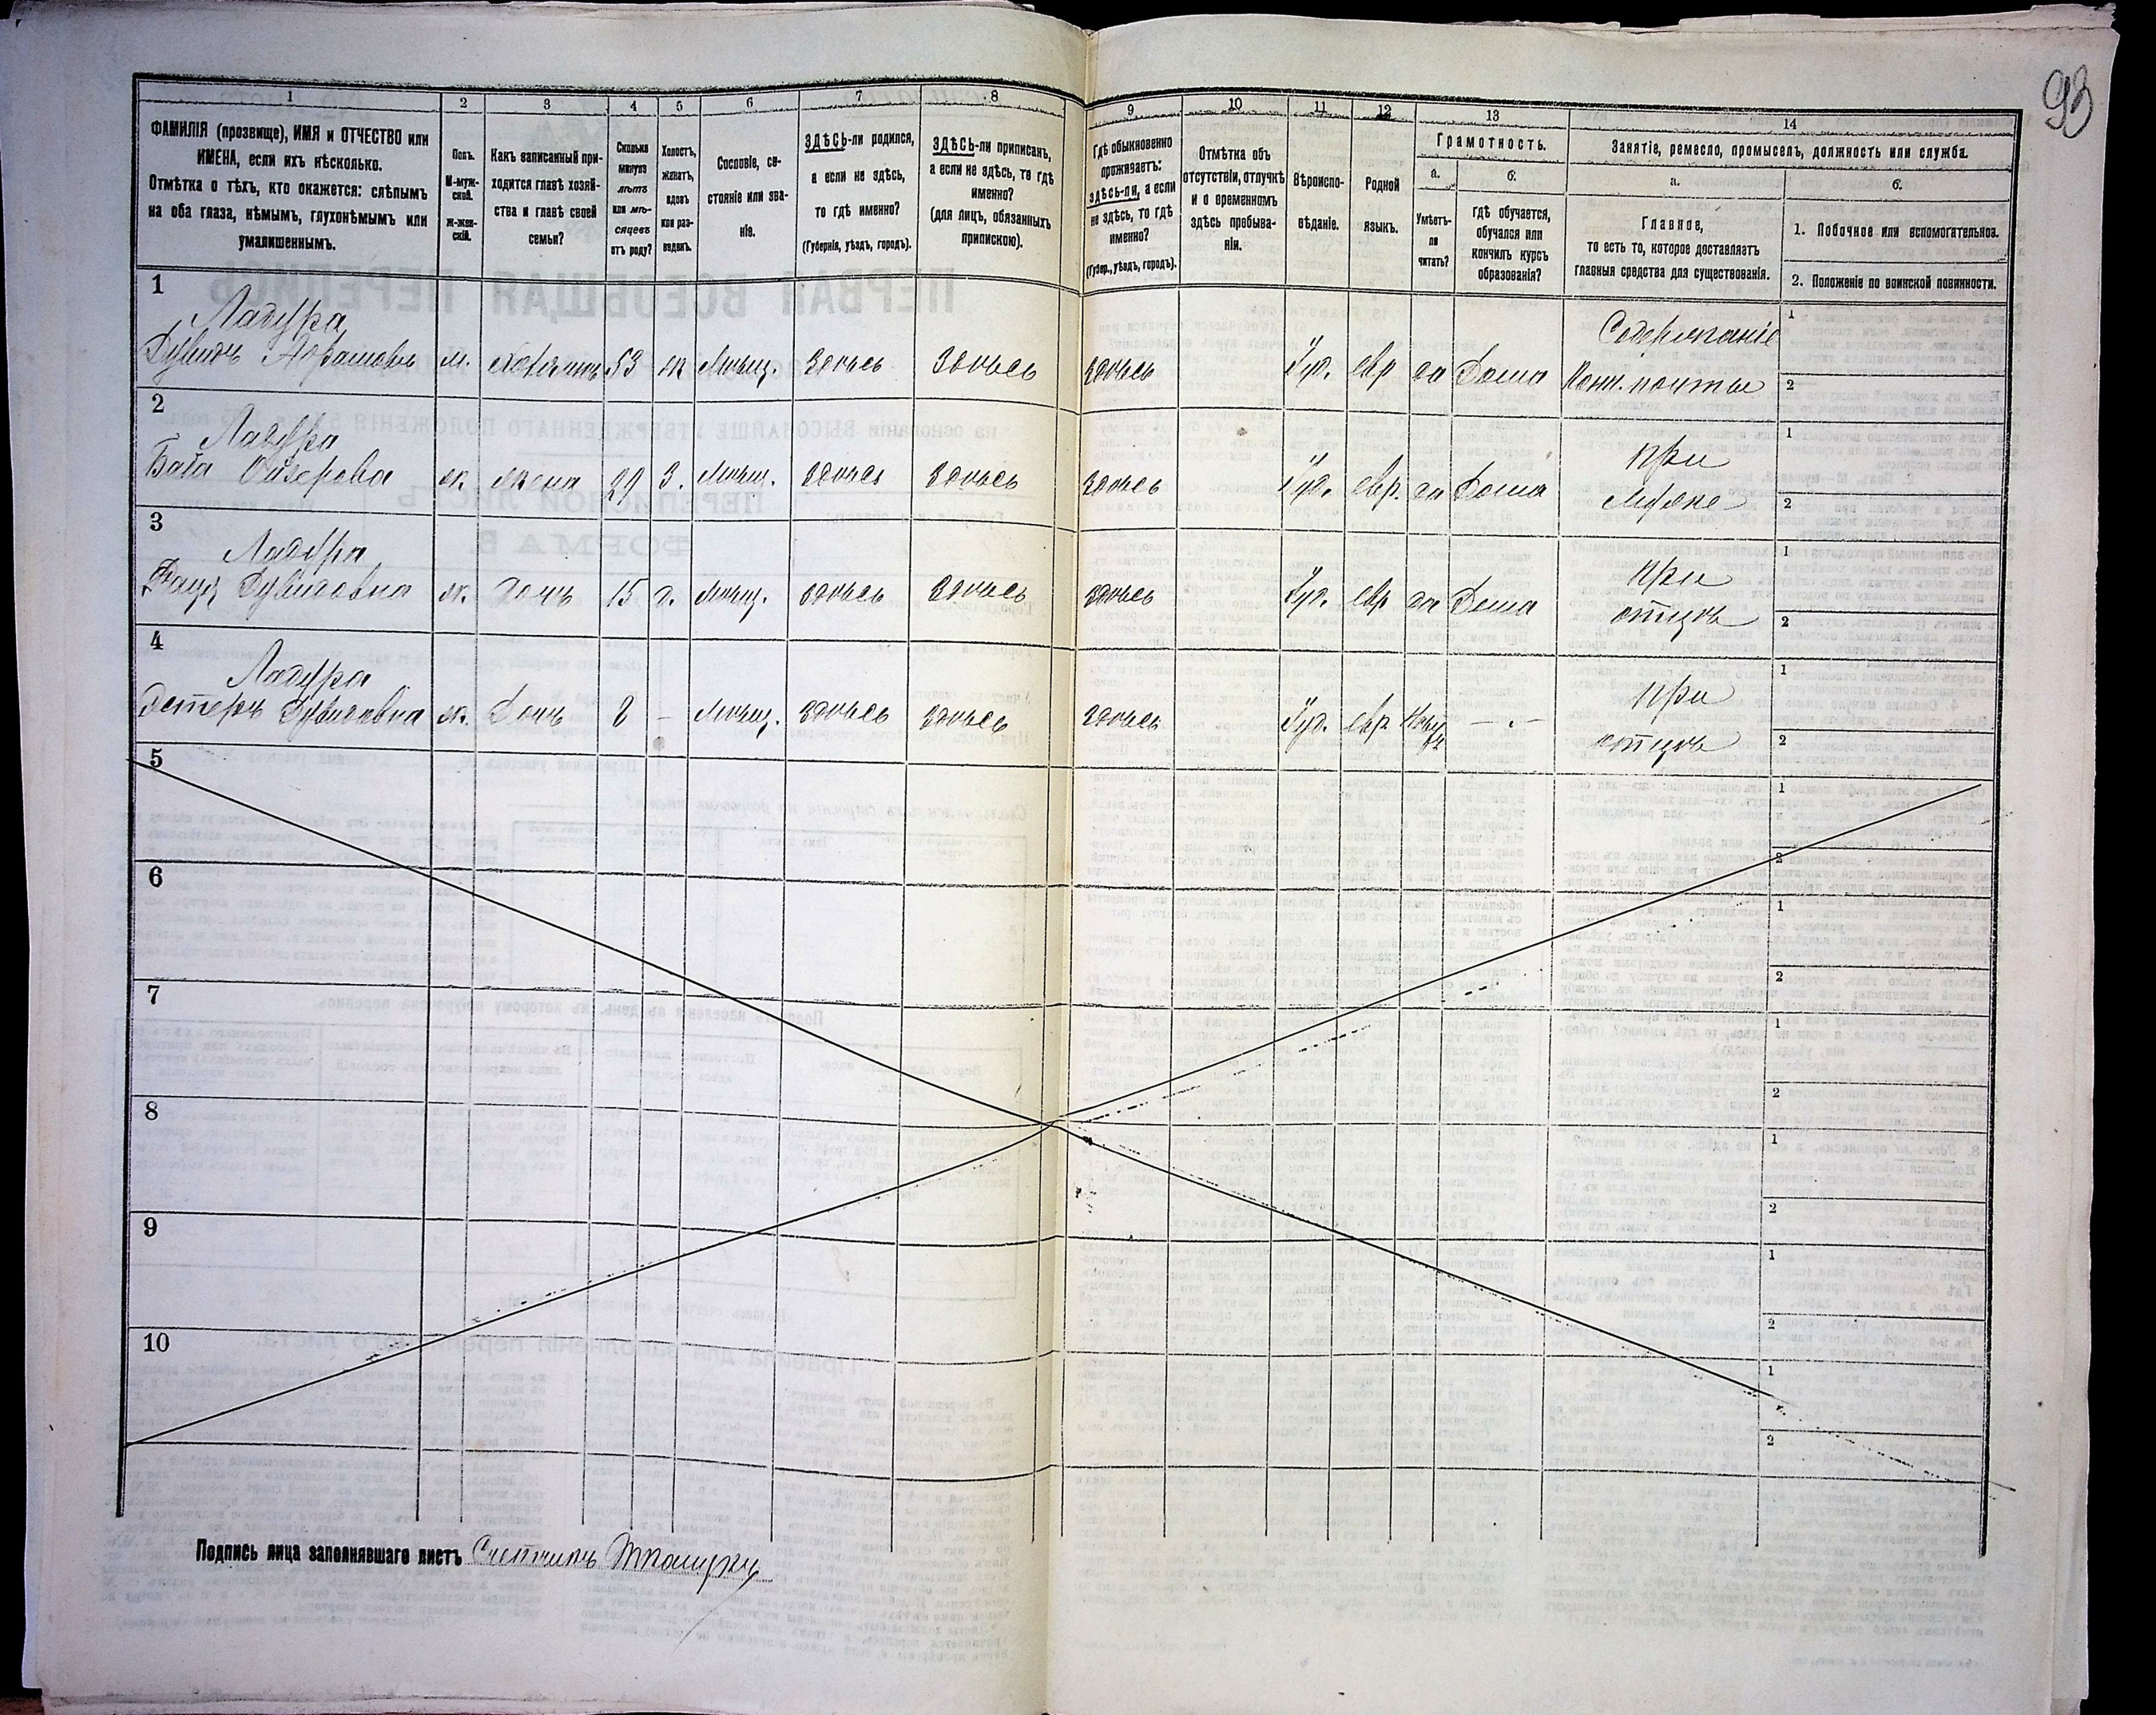 93
1 2 3 4 5 6 7 8 9 10 11 12 13 14
ФАМИЛІЯ (прозвище), ИМЯ и ОТЧЕСТВО или
ИМЕНА, если ихъ нѣсколько.
Отмѣтка о тѣхъ, кто окажется: слѣпымъ
на оба глаза, нѣмымъ, глухонѣмымъ или
умалишеннымъ.
Полъ.
М-муж-
ской.
ж-жен-
скій.
Какъ записанный при-
ходится главѣ хозяй-
ства и главѣ своей
семьи?
Сколько
минуло
лѣтъ
или мѣ-
сяцевъ
отъ роду?
Холостъ,
женатъ,
вдовъ
или раз-
веденъ.
Сословіе, со-
стояніе или зва-
ніе.
ЗДѢСЬ-ли родился,
а если не здѣсь,
то гдѣ именно?
(Губернія, уѣздъ, городъ).
ЗДѢСЬ-ли приписанъ,
а если не здѣсь, то гдѣ
именно?
(для лицъ, обязанныхъ
припискою).
Гдѣ обыкновенно
проживаетъ:
здѣсь-ли, а если
не здѣсь, то гдѣ
именно?
(Губер., уѣздъ, городъ).
Отмѣтка объ
отсутствіи, отлучкѣ
и о временномъ
здѣсь пребыва-
ніи.
Вѣроиспо-
вѣданіе.
Родной
языкъ.
Грамотность.
а.
Умѣетъ-
ли
читать?
б.
гдѣ обучается,
обучался или
кончилъ курсъ
образованія?
Занятіе, ремесло, промыселъ, должность или служба.
а.
Главное,
то есть то, которое доставляетъ
главныя средства для существованія.
б.
1. Побочное или вспомогательное.
2. Положеніе по воинской повинности.
1
Ладура Содержаніе 1
Дувидъ Абрамовъ м. Хозяинъ 53 ж Мѣщ. Здѣсь Здѣсь Здѣсь Іуд. евр да Дома Конт. почты 2
2
Ладура при 1
Оизерова ж. жена 29 З. Мѣщ. Здѣсь Здѣсь Здѣсь Іуд. евр. да Дома мужѣ 2
3
Ладура при 1
Дувидовна ж. дочь 15 д. Мѣщ. здѣсь Здѣсь здѣсь Іуд. евр да Дома отцѣ 2
4
Ладура при 1
Эстеръ Дувидовна ж. Дочь 8 – Мѣщ. Здѣсь Здѣсь Здѣсь Іуд. евр – . – отцѣ 2
5 1
2
6 1
2
7 1
2
8 1
2
9 1
2
10 1
2
Подпись лица заполнявшаго листъ Счетчикъ